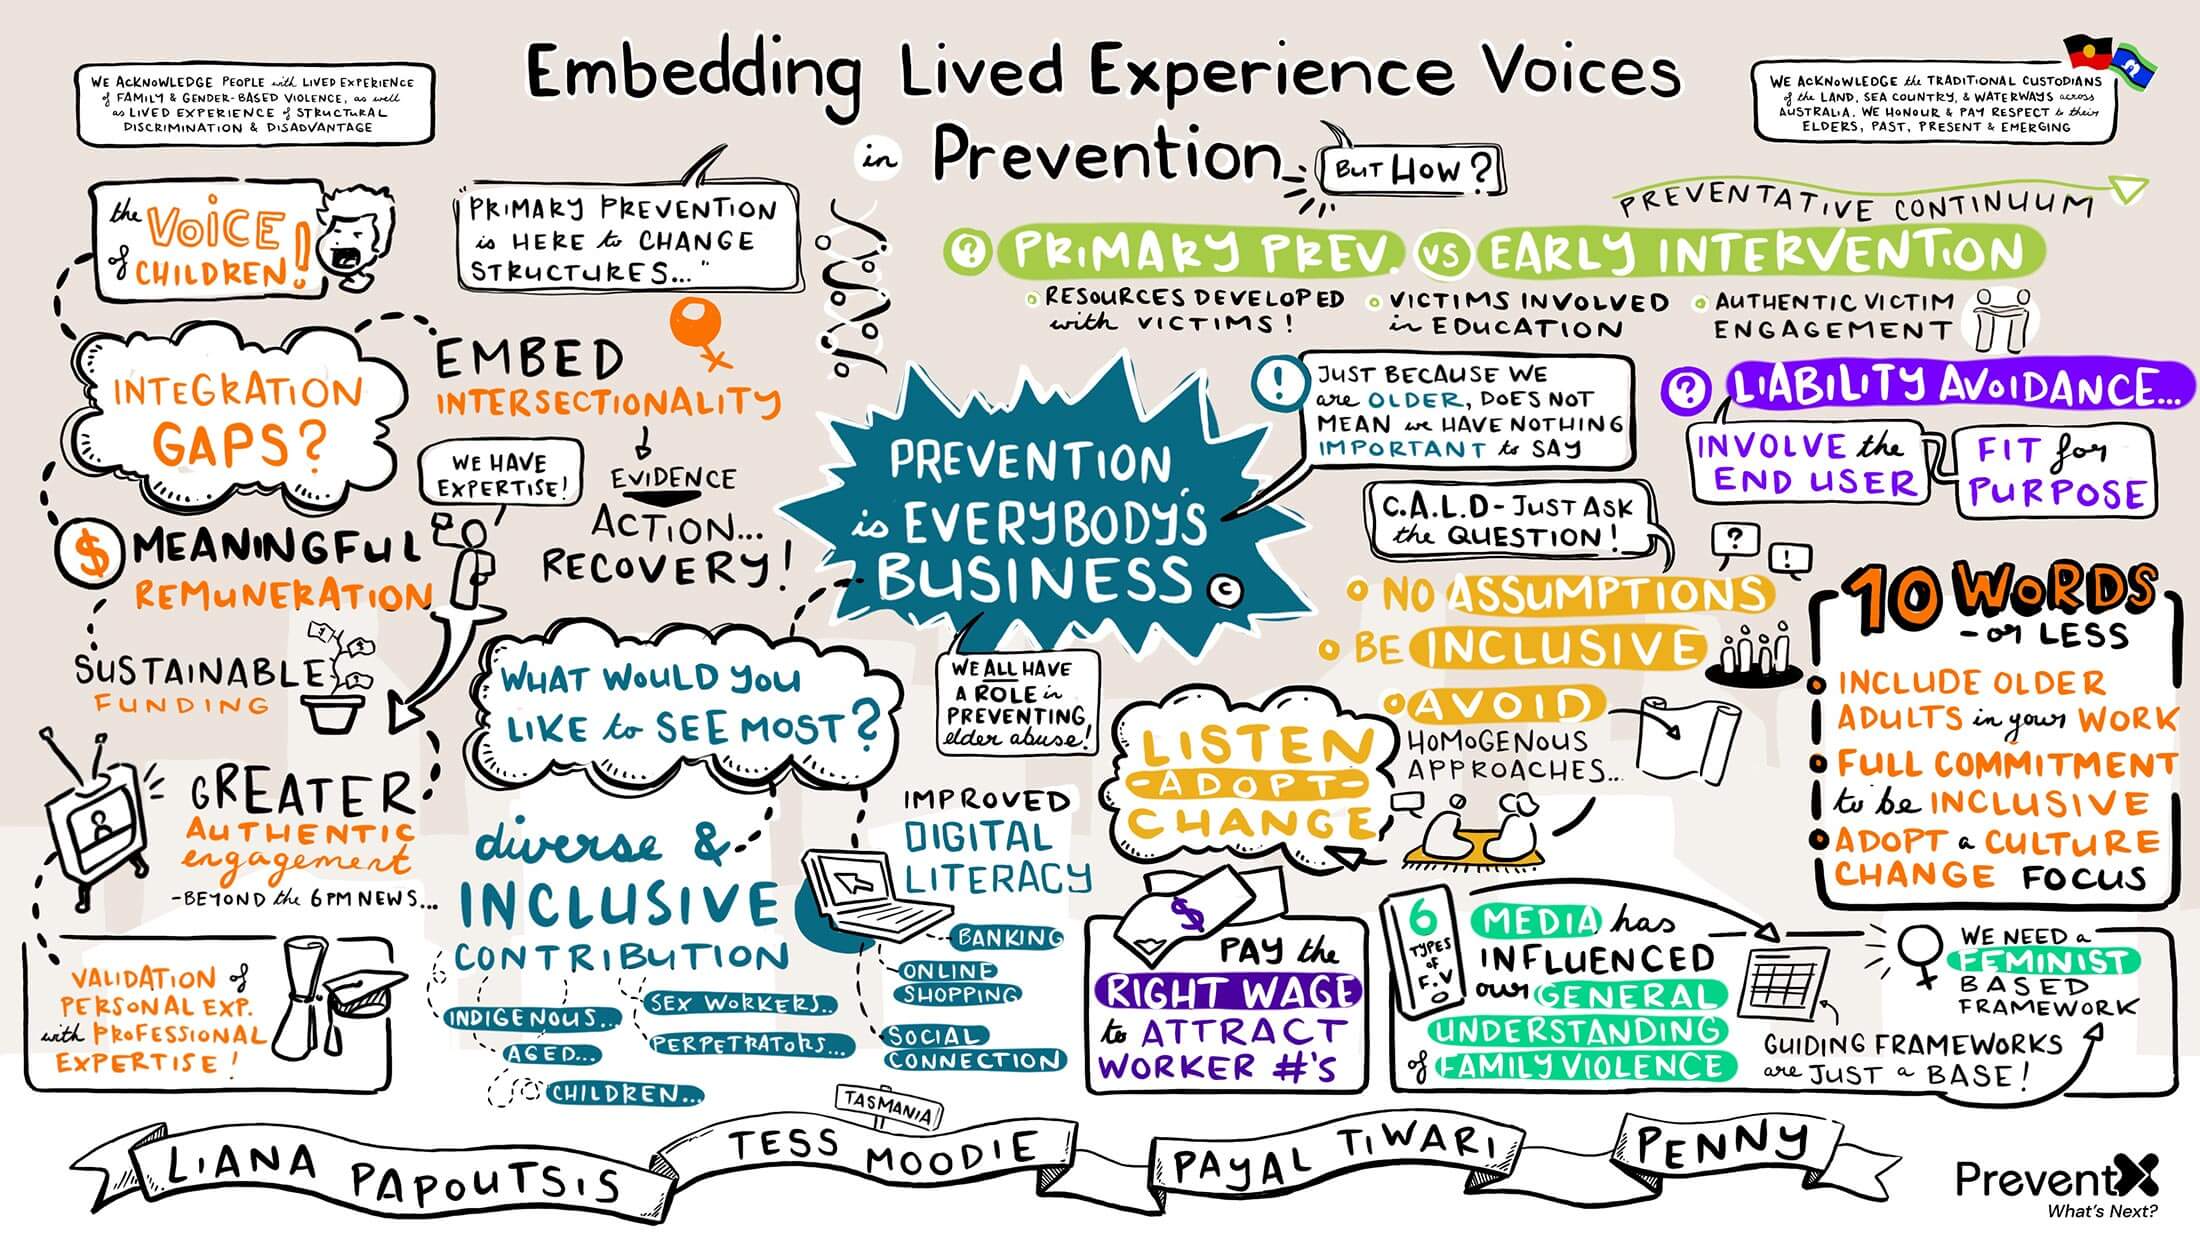 Embedding Lived Experience Voices
in Prevention
BUT HOW?
WE ACKNOWLEDGE PEOPLE with LIVED EXPERIENCE
of FAMILY & GENDER-BASED VIOLENCE, as well
as LIVED EXPERIENCE of STRUCTURAL
DISCRIMINATION & DISADVANTAGE
WE ACKNOWLEDGE the TRADITIONAL CUSTODIANS
of the LAND, SEA COUNTRY, & WATERWAYS across
AUSTRALIA. WE HONOUR & PAY RESPECT to their
ELDERS, PAST, PRESENT & EMERGING
the VOICE
of CHILDREN!
"PRIMARY PREVENTION
is HERE to CHANGE
STRUCTURES..."
INTEGRATION
GAPS?
EMBED
INTERSECTIONALITY
EVIDENCE
ACTION...
RECOVERY!
WE HAVE
EXPERTISE!
$ MEANINGFUL
REMUNERATION
SUSTAINABLE
FUNDING
GREATER
AUTHENTIC
engagement
-BEYOND the 6PM NEWS...
VALIDATION of
PERSONAL EXP.
with PROFESSIONAL
EXPERTISE!
PREVENTION
is EVERYBODY'S
BUSINESS
C
WE ALL HAVE
A ROLE in
PREVENTING
elder abuse!
WHAT WOULD YOU
LIKE to SEE MOST?
diverse &
INCLUSIVE
CONTRIBUTION
INDIGENOUS...
AGED...
CHILDREN...
SEX WORKERS..
PERPETRATORS...
IMPROVED
DIGITAL
LITERACY
BANKING
ONLINE
SHOPPING
SOCIAL
CONNECTION
PREVENTATIVE CONTINUUM
? PRIMARY PREV. VS EARLY INTERVENTION
RESOURCES DEVELOPED
with VICTIMS!
VICTIMS INVOLVED
in EDUCATION
AUTHENTIC VICTIM
ENGAGEMENT
! JUST BECAUSE WE
are OLDER, DOES NOT
MEAN we HAVE NOTHING
IMPORTANT to SAY
? LIABILITY AVOIDANCE...
INVOLVE the
END USER
FIT for
PURPOSE
C.A.L.D - JUST ASK
the QUESTION!
?
!
NO ASSUMPTIONS
BE INCLUSIVE
AVOID
HOMOGENOUS
APPROACHES...
LISTEN
-ADOPT-
CHANGE
10 WORDS
- or LESS
INCLUDE OLDER
ADULTS in your WORK
FULL COMMITMENT
to be INCLUSIVE
ADOPT a CULTURE
CHANGE FOCUS
$
PAY the
RIGHT WAGE
to ATTRACT
WORKER #'S
6
TYPES
of
F.V
MEDIA has
INFLUENCED
our GENERAL
UNDERSTANDING
of FAMILY VIOLENCE
WE NEED a
FEMINIST
BASED
FRAMEWORK
GUIDING FRAMEWORKS
are JUST a BASE!
LIANA PAPOUTSIS
TASMANIA
TESS MOODIE
PAYAL TIWARI
PENNY
PreventX
What's Next?